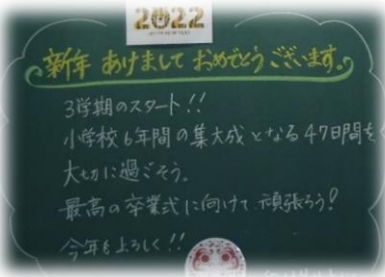 2022
新年 あけまして おめでとうございます。
3学期のスタート!!
小学校6年間の集大成となる47日間を
大切に過ごそう。
最高の卒業式に向けて頑張ろう!
今年もよろしく!!